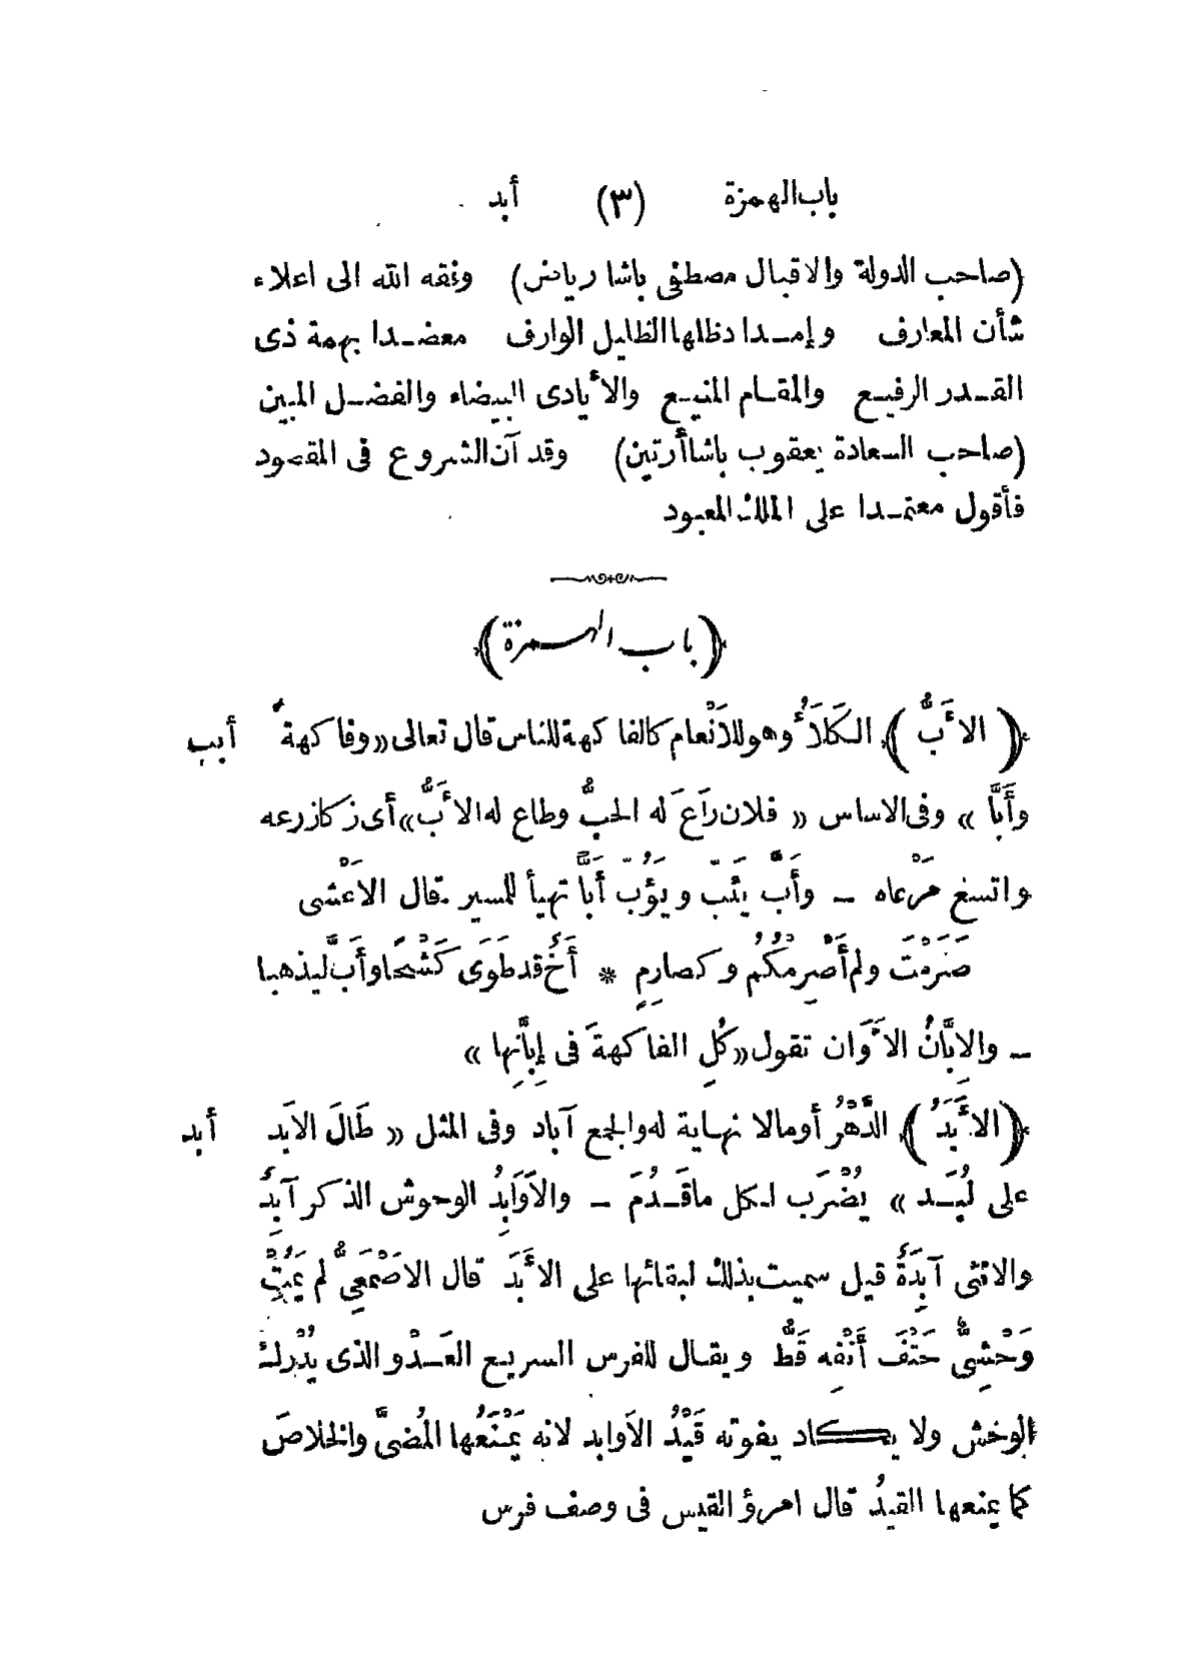 باب الهمزة (٣) أبد
(صاحب الدولة والاقبال مصطفى باشا رياض) وفقه الله الى اعلاء
شأن المعارف وإمدادظلها الظليل الوارف معضدا بهمة ذى
القدر الرفيع والمقام المنيع والأيادى البيضاء والفضل المبين
(صاحب السعادة يعقوب باشا أرتين) وقد آن الشروع فى المقصود
فأقول معتمدا على الملك المعبود
﴿باب الهمزة﴾
﴿الأَبُّ﴾ الكَلَأُ وهو للأنْعام كالفاكهة للناس قال تعالى «وفاكهةً أبب
وأَبًّا» وفى الاساس «فلان رَاعَ له الحبُّ وطاع له الأَبُّ» أى زكا زرعه
واتسع مَرْعاه – وأَبَّ يَئِبّ ويَؤُبّ أَبًّا تهيأ للمسير قال الاعْشى
صَرَمْتُ ولم أَصْرِمْكُمُ وكصارِمٍ * أَخٌ قد طَوَى كَشْحًا وأَبَّ ليذهبا
– والإبَّانُ الأَوَان تقول «كُلِ الفاكهةَ فى إبَّانِها»
﴿الأَبَدُ﴾ الدَّهْرُ أو مالا نهاية له والجمع آباد وفى المثل «طَالَ الأبَد أبد
على لُبَد» يُضْرَب لكل ماقَدُمَ – والأَوَابِدُ الوحوش الذكر آبِدٌ
والانثى آبِدَةٌ قيل سميت بذلك لبقائها على الأَبَدَ قال الاصْمَعِىُّ لم يَمُتْ
وَحْشِىٌّ حَتْفَ أَنْفِه قَطُّ ويقال للفرس السريع العَدْو الذى يُدْرِك
الوحش ولا يكاد يفوته قَيْدُ الأوابد لانه يَمْنَعُها المُضىَّ والخلاصَ
كما يمنعها القيدُ قال امرؤ القيس فى وصف فرس